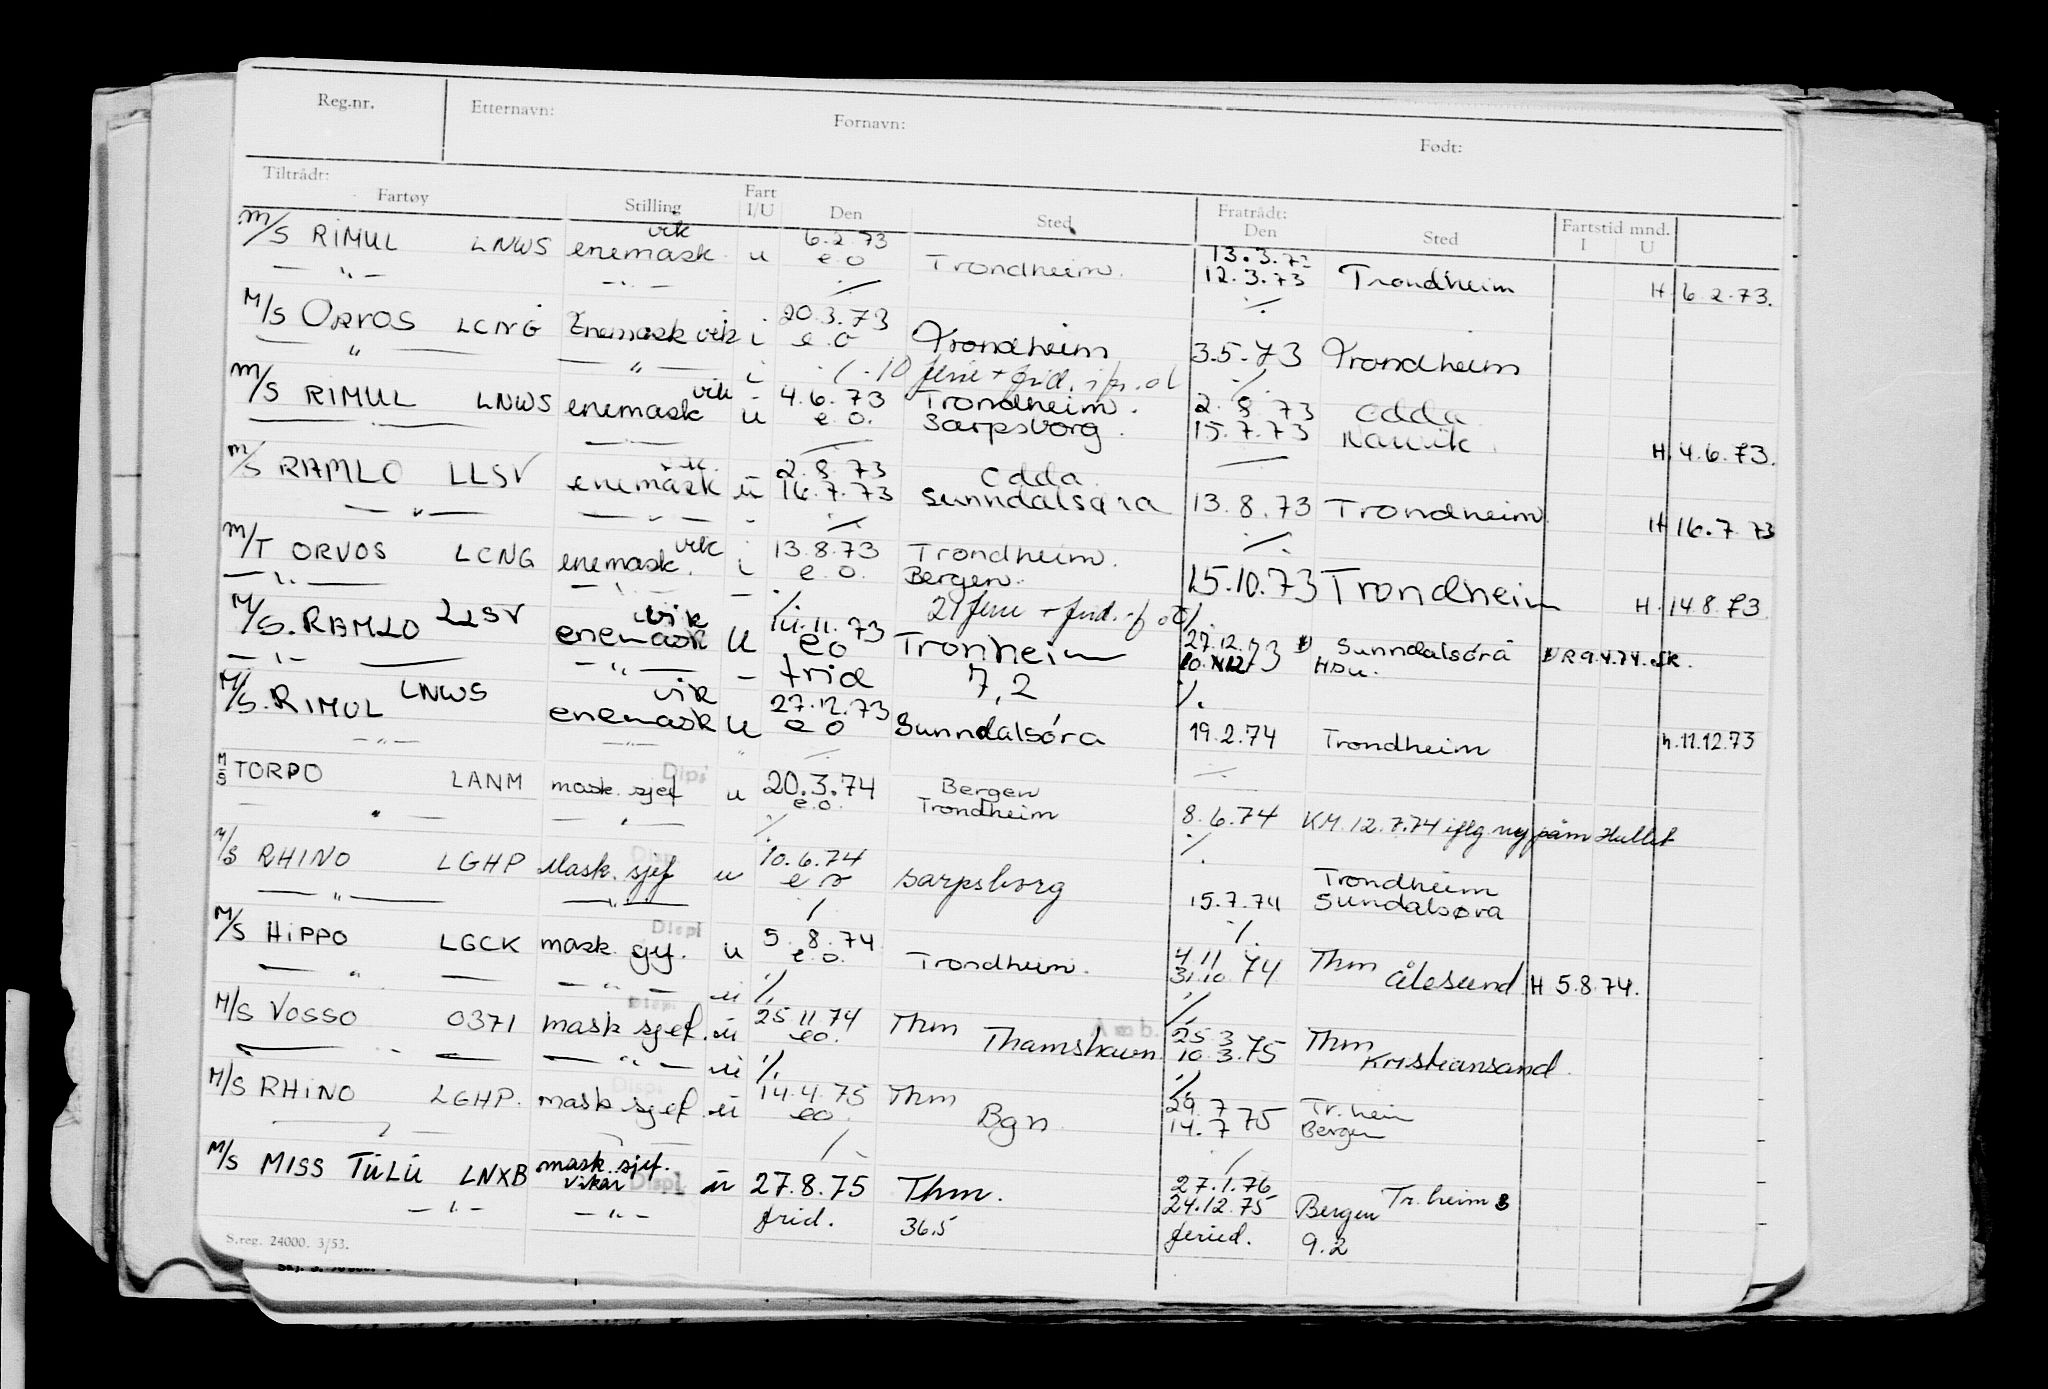 Reg.nr. Etternavn: Fornavn: Født:
Tiltrådt: Fratrådt:
Fartøy Stilling Fart I/U Den Sted Den Sted Fartstid mnd. I U
vik 6.2.73 13.3.73
M/S RIMUL LNWS enemask. u e.o Trondheim. 12.3.73 Trondheim H 6.2.73.
— " — — " — ·/· ·/·
20.3.73
M/S ORVOS LCNG Enemask vik i e.o Trondheim 3.5.73 Trondheim
— " — — " — i ·/· 10 ferie + frid. ·/·
vik 4.6.73 Trondheim. 2.8.73 Odda
M/S RIMUL LNWS enemask u e.o. Sarpsborg. 15.7.73 Narvik. H. 4.6.73.
vik. 2.8.73 Odda
M/S RAMLO LLSV enemask u 16.7.73 Sunndalsøra 13.8.73 Trondheim H 16.7.73
— " — — " — - ·/· ·/·
vik 13.8.73 Trondheim.
M/T ORVOS LCNG enemask. i e.o. Bergen. 15.10.73 Trondheim H. 14.8.73.
— " — — " — - ·/· 21 ferie + frid. ·/·
vik 11.11.73 27.12.73 Sunndalsörå
M/S. RAMLO LLSV enemask u eo Tronheim 10.12.73 HDU. R 9.4.74. SK.
— " — — " — - frid 7,2 ·/·
vik 27.12.73
M/S. RIMUL LNWS enemask u eo Sunndalsóra 19.2.74 Trondheim h. 11.12.73
— " — — " — " ·/· ·/·
Dipl
M/S TORPO LANM mask. sjef u 20.3.74 Bergen
— " — — " — e.o. Trondheim 8.6.74 KM. 12.7.74 iflg. ny påm Hullet
·/· ·/·
Dipl 10.6.74 Trondheim
M/S RHINO LGHP Mask. sjef u e o Sarpsborg 15.7.74 Sundalsøra
— " — — " — ·/· ·/·
Dipl
M/S HIPPO LGCK mask. sjef. u 5.8.74 4.11
e.o. Trondheim. 31.10.74 Thm Ålesund H 5.8.74.
— " — — " — u ·/· ·/·
Dipl Amb.
M/S VOSSO 0371 mask sjef. u 25.11.74 Thm 25.3
eo. Thamshavn 10.3.75 Thm Kristiansand.
— " — — " — u ·/· ·/·
Dipl
M/S RHINO LGHP. mask sjef. u 14.4.75 Thm 29.7 Tr.heim
eo. Bgn 14.7.75 Bergen
— " — — " — ·/· ·/·
mask. sjef. 27.1.76
M/S MISS TÜLÜ LNXB vikar Dipl u 27.8.75 Thm. 24.12.75 Bergen Tr.heim
— " — — " — frid. 36.5 feried. 9.2
S.reg. 24000. 3/53.